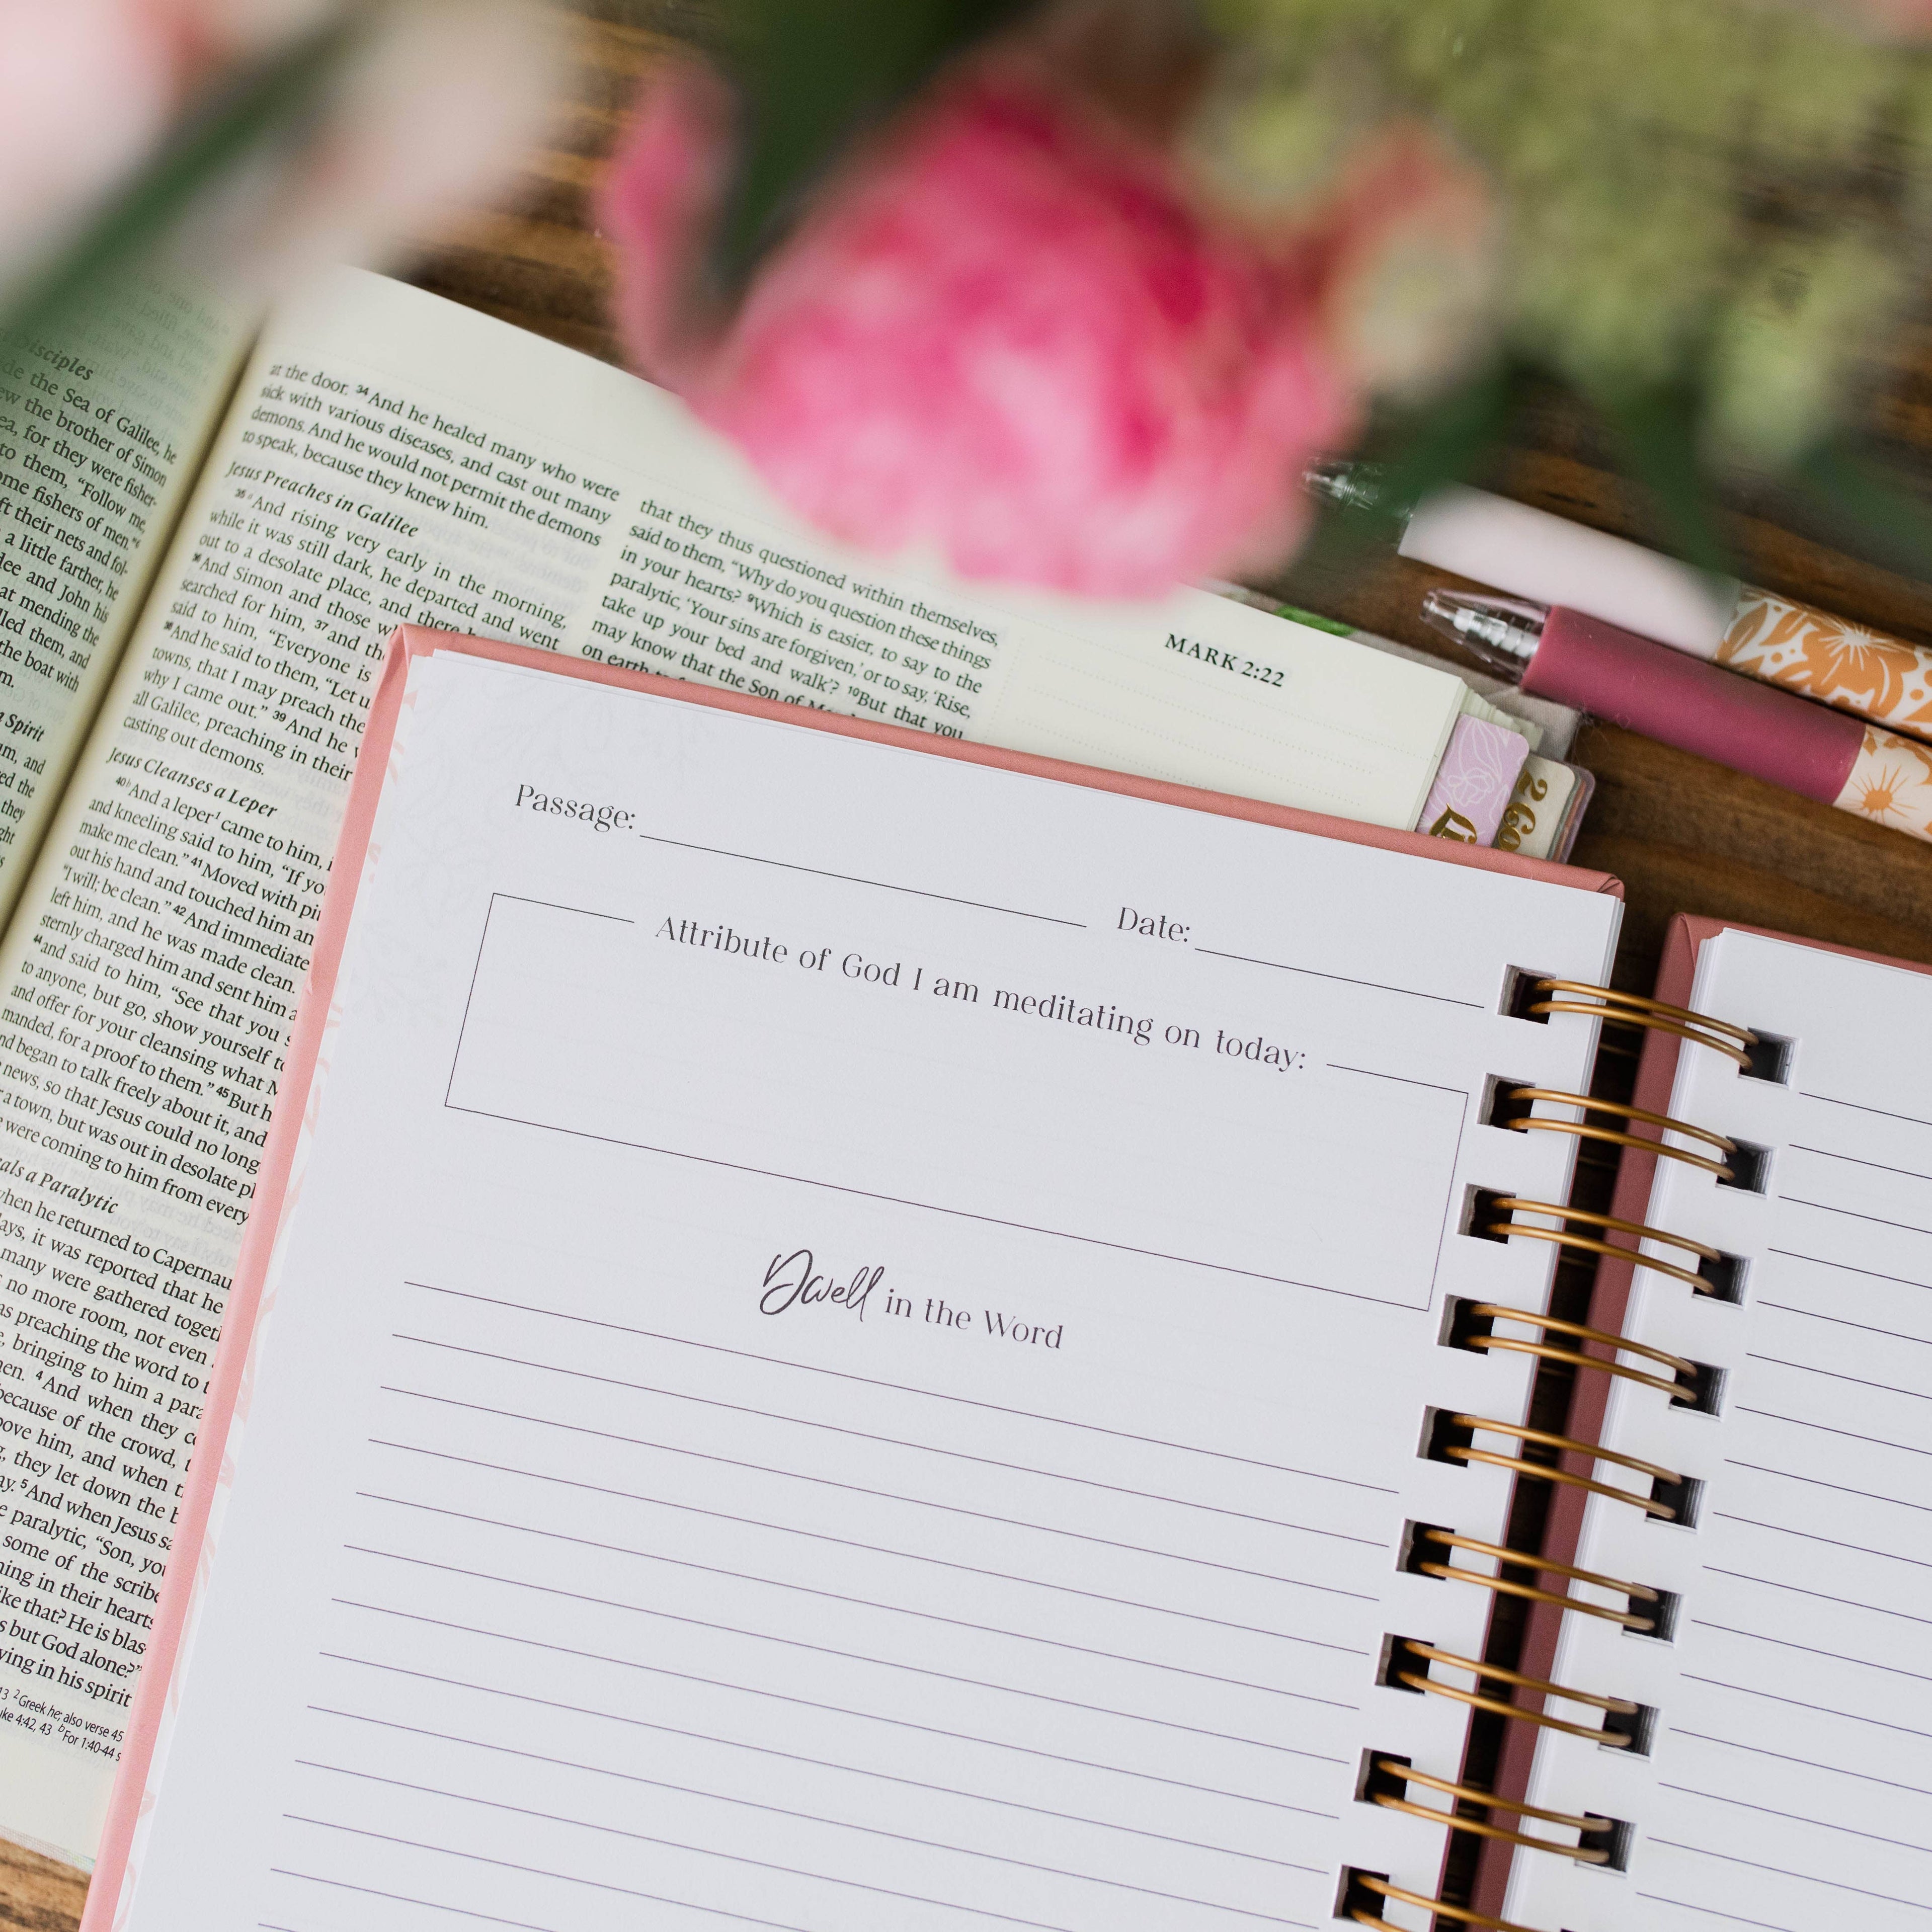 Disciples
de the Sea of Galilee, he
ew the brother of Simon
ea, for they were fisher-
to them, “Follow me,
ome fishers of men.”
ft their nets and fol-
a little farther, he
lee and John his
at mending the
led them, and
the boat with
m.
Spirit
um, and
ed the
they
ght
at the door. 34 And he healed many who were
sick with various diseases, and cast out many
demons. And he would not permit the demons
to speak, because they knew him.
Jesus Preaches in Galilee
35 And rising very early in the morning,
while it was still dark, he departed and went
out to a desolate place, and there
36 And Simon and those
searched for him, 37 and
said to him, “Everyone is
38 And he said to them, “Let
towns, that I may preach
why I came out.” 39 And he
all Galilee, preaching in their
casting out demons.
Jesus Cleanses a Leper
40 b And a leper 1 came to him,
and kneeling said to him, “If
make me clean.” 41 Moved with
out his hand and touched him
“I will; be clean.” 42 And
left him, and he was made clean.
sternly charged him and sent him
44 and said to him, “See that you
to anyone, but go, show yourself
and offer for your cleansing what
manded, for a proof to them.” 45 But
nd began to talk freely about it, and
news, so that Jesus could no long
a town, but was out in desolate pl
were coming to him from every
als a Paralytic
when he returned to Capernau
days, it was reported that he
many were gathered toget
no more room, not even
as preaching the word to
bringing to him a para
en. 4 And when they
because of the crowd,
ove him, and when
they let down the
ay. 5 And when Jesus
paralytic, “Son,
some of the scribe
ning in their hearts
ike that? He is blas-
s but God alone?”
ving in his spirit
13 2 Greek he; also verse 45
4:42, 43 b For 1:40-44
that they thus questioned within themselves,
said to them, “Why do you question these things
in your hearts? 9 Which is easier, to say to the
paralytic, ‘Your sins are forgiven,’ or to say, ‘Rise,
take up your bed and walk’? 10 But that you
may know that the Son of
on earth
MARK 2:22
Passage:
Date:
Attribute of God I am meditating on today:
Dwell in the Word